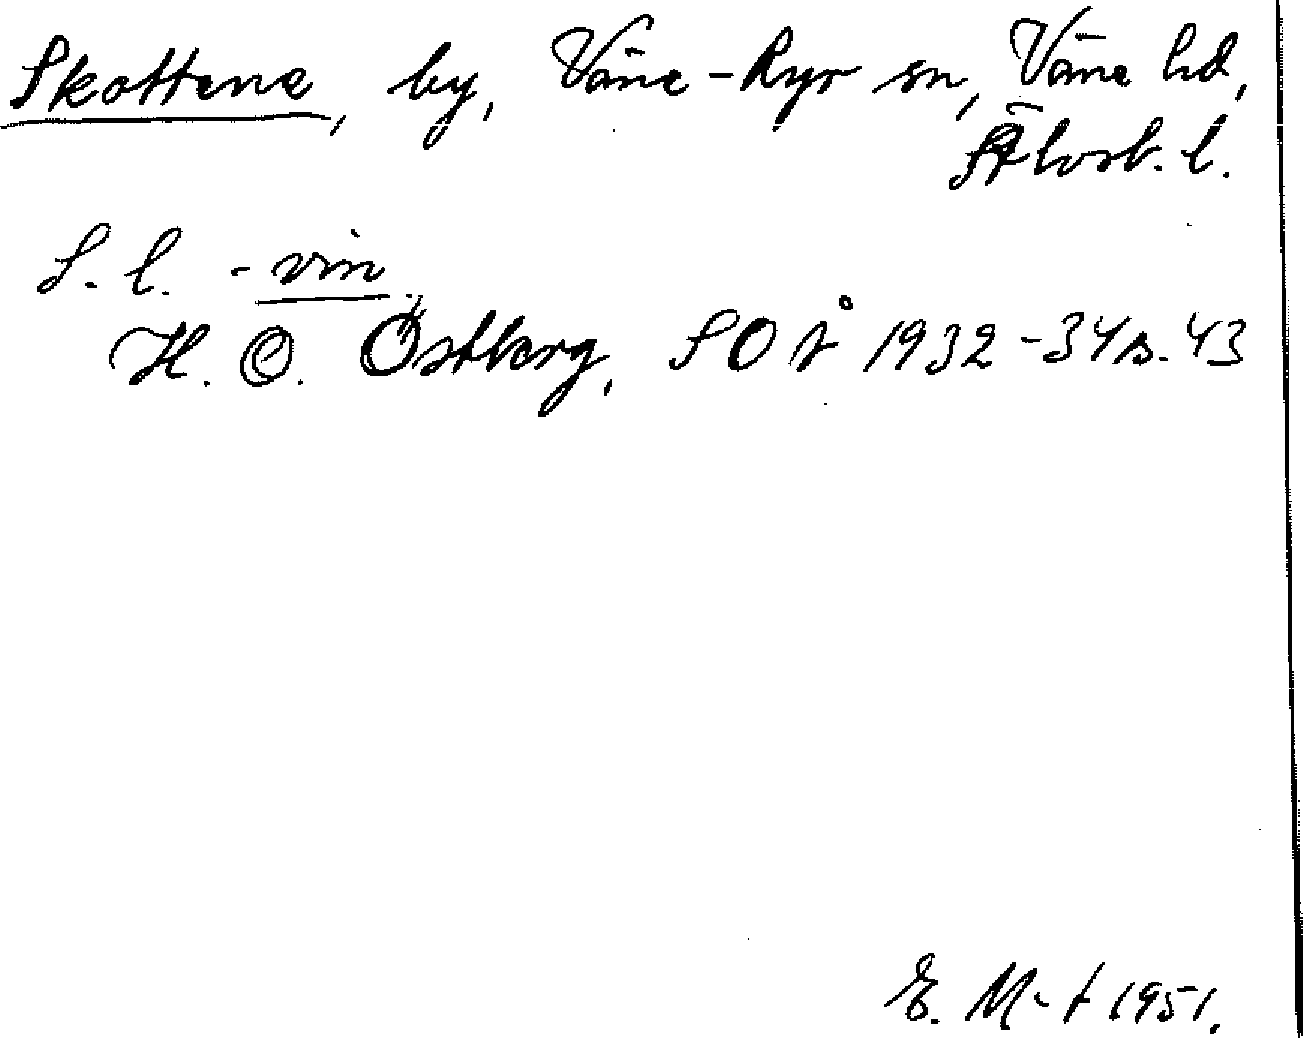 Skottene, by, Väne-Ryr sn, Väne hd,
Älvsb. l.
S. l. -vin
H. O. Östberg, SOÅ 1932-34 s. 43
E. M-t 1951.